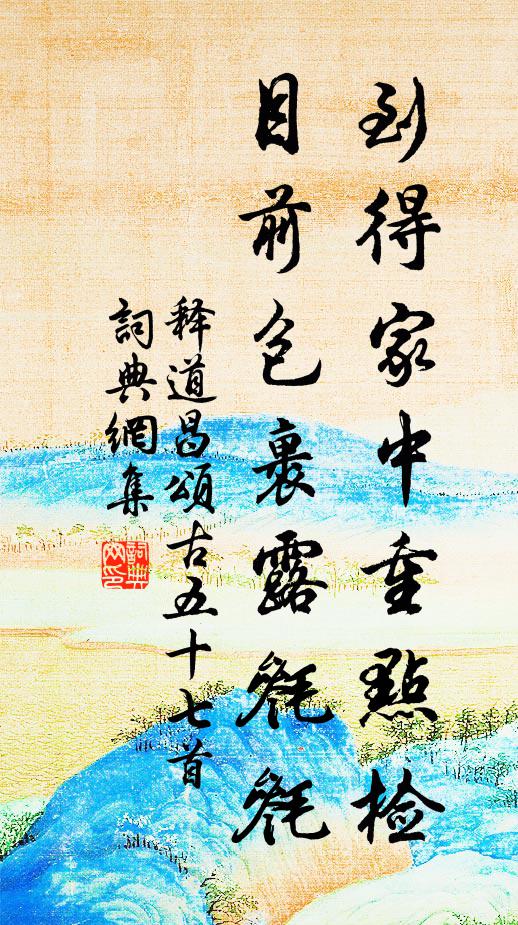 到得家中重點检
目前包裹露毿毿
释道昌頌古五十七首
詞典網集
詞典网印